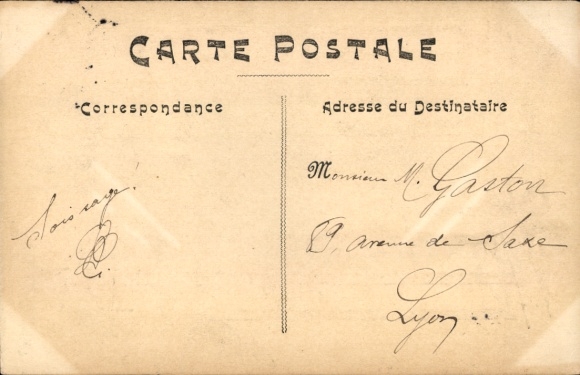 CARTE POSTALE
Correspondance
Adresse du Destinataire
Sois sage!
Monsieur M. Gaston
avenue de Saxe
Lyon